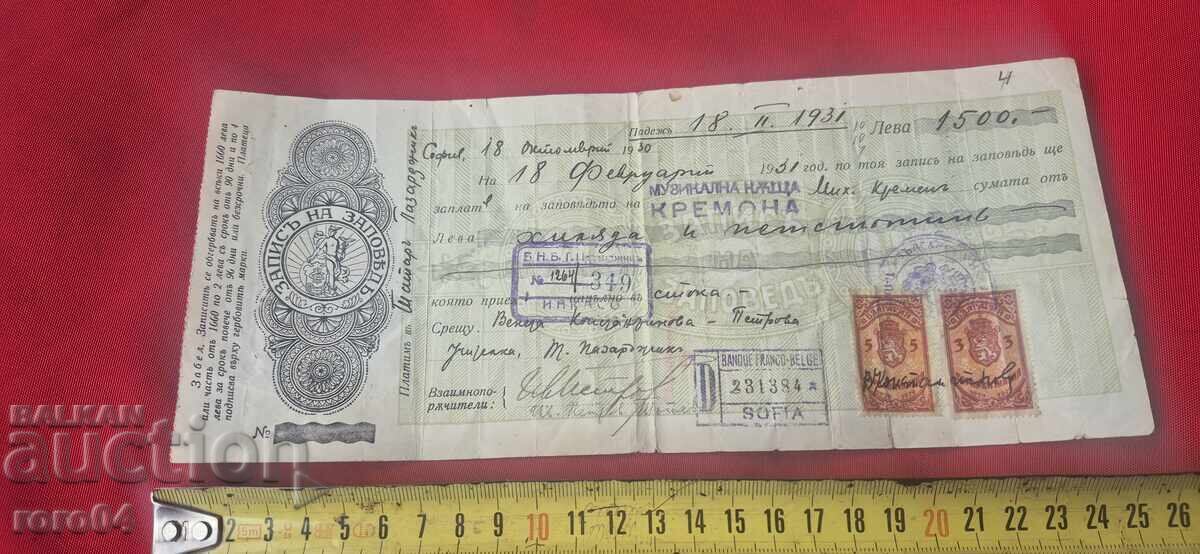 4
Падежъ 18. II. 1931 Лева 1500.-
София, 18 Октомврий 1930
На 18 Февруарий 1931 год. по тоя запись на заповѣдь ще
заплатѫ на заповѣдьта на МУЗИКАЛНА КѪЩА КРЕМОНА Мих. Кременъ сумата отъ
Лева хиляда и петстотинъ
Б.Н.Б. Т. Пазарджикъ
№ 1264 349
която прие напълно въ стока -
Срещу Венеца Константинова - Петрова
Учителка, Т. Пазарджикъ
Взаимнопо-
рѫчители:
BANQUE FRANCO-BELGE
D 231384
SOFIA
БЪЛГАРИЯ
5 5
БЪЛГАРИЯ
3 3
Платимъ въ Татаръ Пазарджикъ
ЗАПИСЪ НА ЗАПОВѢДЬ
№
Забел. Записитѣ се обгербватъ на всѣки 1660 лева
или часть отъ 1660 по 2 лева съ срокъ отъ 90 дни и по 4
лева за срокъ повече отъ 90 дни или безсрочни. Платеца
подписва върху гербовитѣ марки.
BALKAN
auction
roro64
2 3 4 5 6 7 8 9 10 11 12 13 14 15 16 17 18 19 20 21 22 23 24 25 26